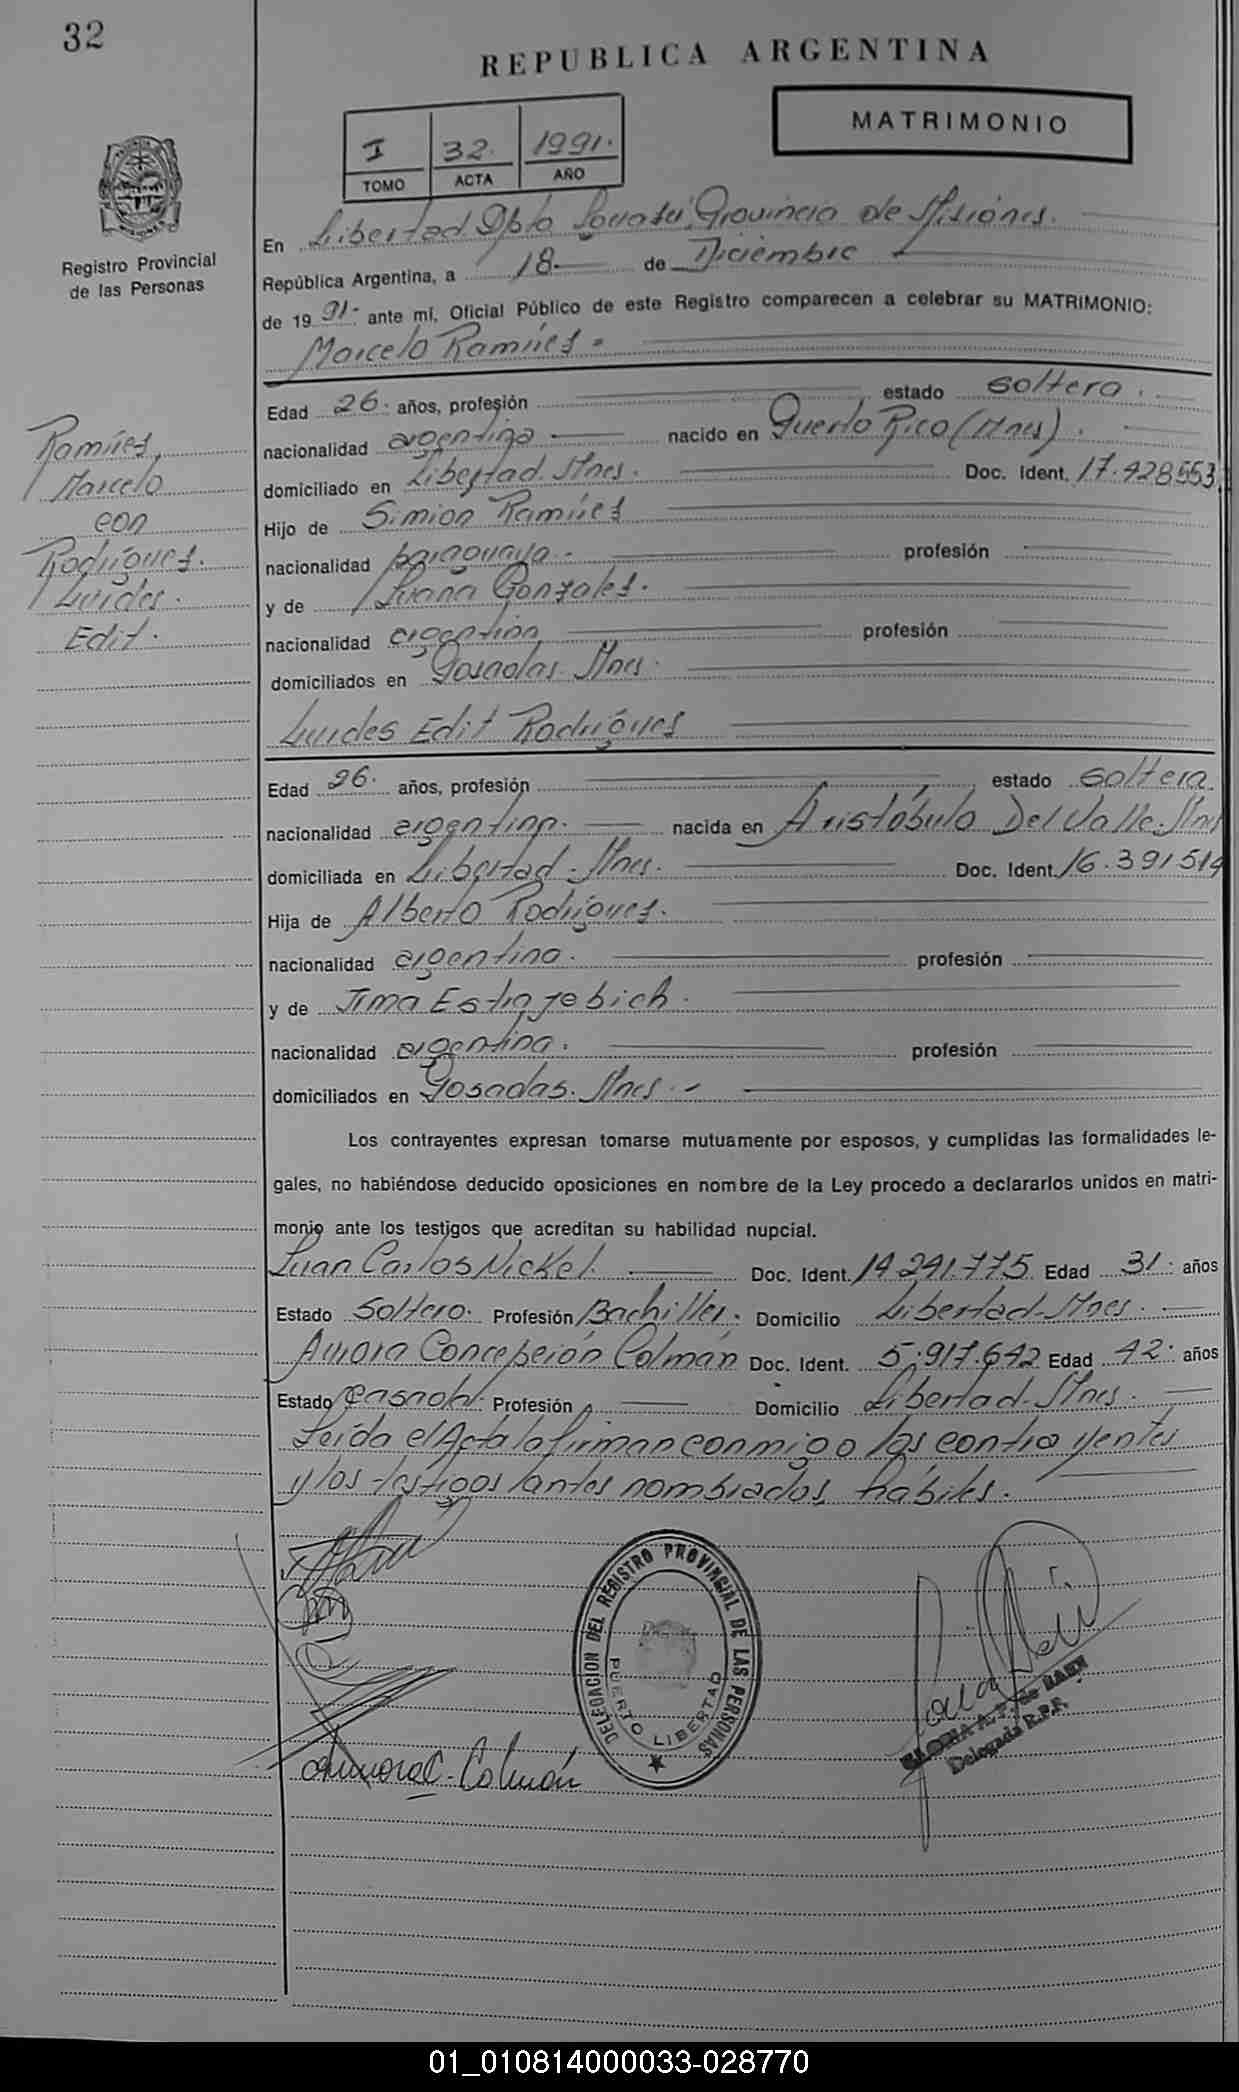 32
REPUBLICA ARGENTINA
MATRIMONIO
I 32. 1991.
TOMO ACTA AÑO
Registro Provincial
de las Personas
En Libertad Dpto Iguazú, Provincia de Misiones.
República Argentina, a 18 de Diciembre
de 19 91- ante mí, Oficial Público de este Registro comparecen a celebrar su MATRIMONIO:
Marcelo Ramires
Ramires,
Marcelo
con
Rodrígues.
Lurdes.
Edit.
Edad 26. años, profesión estado soltero.
nacionalidad argentina nacido en Puerto Rico (Mnes).
domiciliado en Libertad. Mnes. Doc. Ident. 17.428553.
Hijo de Simion Ramires
nacionalidad paraguaya. profesión
y de Juana Gonzales.
nacionalidad argentina profesión
domiciliados en Posadas. Mnes.
Lurdes Edit Rodrígues
Edad 26. años, profesión estado soltera.
nacionalidad argentina. nacida en Aristóbulo Del Valle. Mnes
domiciliada en Libertad. Mnes. Doc. Ident. 16.391514
Hija de Alberto Rodrígues.
nacionalidad argentina. profesión
y de
nacionalidad argentina. profesión
domiciliados en Posadas. Mnes.
Los contrayentes expresan tomarse mutuamente por esposos, y cumplidas las formalidades le-
gales, no habiéndose deducido oposiciones en nombre de la Ley procedo a declararlos unidos en matri-
monio ante los testigos que acreditan su habilidad nupcial.
Juan Carlos Nickel. Doc. Ident. 14.241.775 Edad 31. años
Estado Soltero. Profesión Bachiller. Domicilio Libertad. Mnes.
Aurora Concepción Colmán Doc. Ident. 5.917.642 Edad 42. años
Estado casada. Profesión Domicilio Libertad. Mnes.
Leída el Acta la firman conmigo los contrayentes
y los testigos antes nombrados hábiles.
DELEGACION DEL REGISTRO PROVINCIAL DE LAS PERSONAS
PUERTO LIBERTAD
Aurora C. Colmán
GLORIA A. F. de
Delegada R.P.P.
01_010814000033-028770